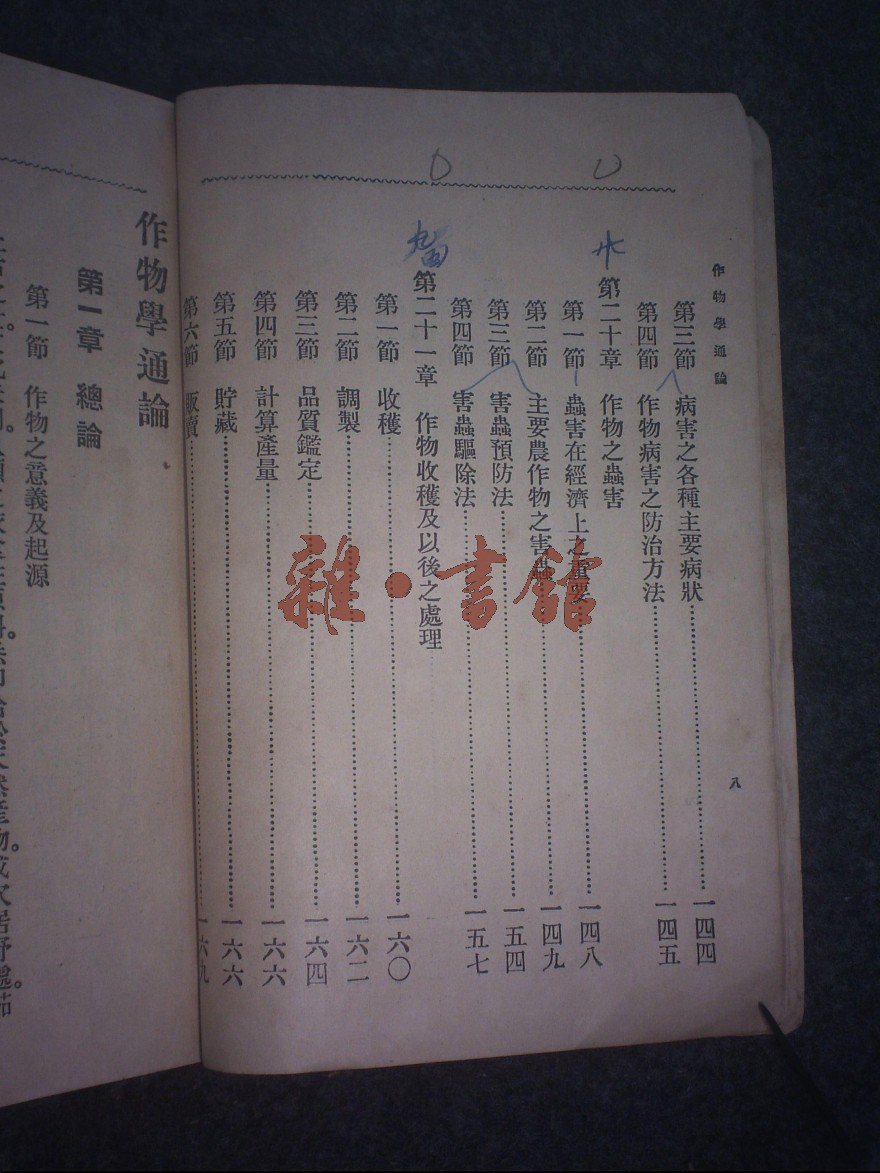 作物學通論
八
第三節 病害之各種主要病狀……一四四
第四節 作物病害之防治方法……一四五
第二十章 作物之蟲害
第一節 蟲害在經濟上之重要……一四八
第二節 主要農作物之害蟲……一四九
第三節 害蟲預防法……一五四
第四節 害蟲驅除法……一五七
第二十一章 作物收穫及以後之處理
第一節 收穫……一六〇
第二節 調製……一六二
第三節 品質鑑定……一六四
第四節 計算產量……一六六
第五節 貯藏……一六六
第六節 販賣……一六九
作物學通論
第一章 總論
第一節 作物之意義及起源
雜·書館